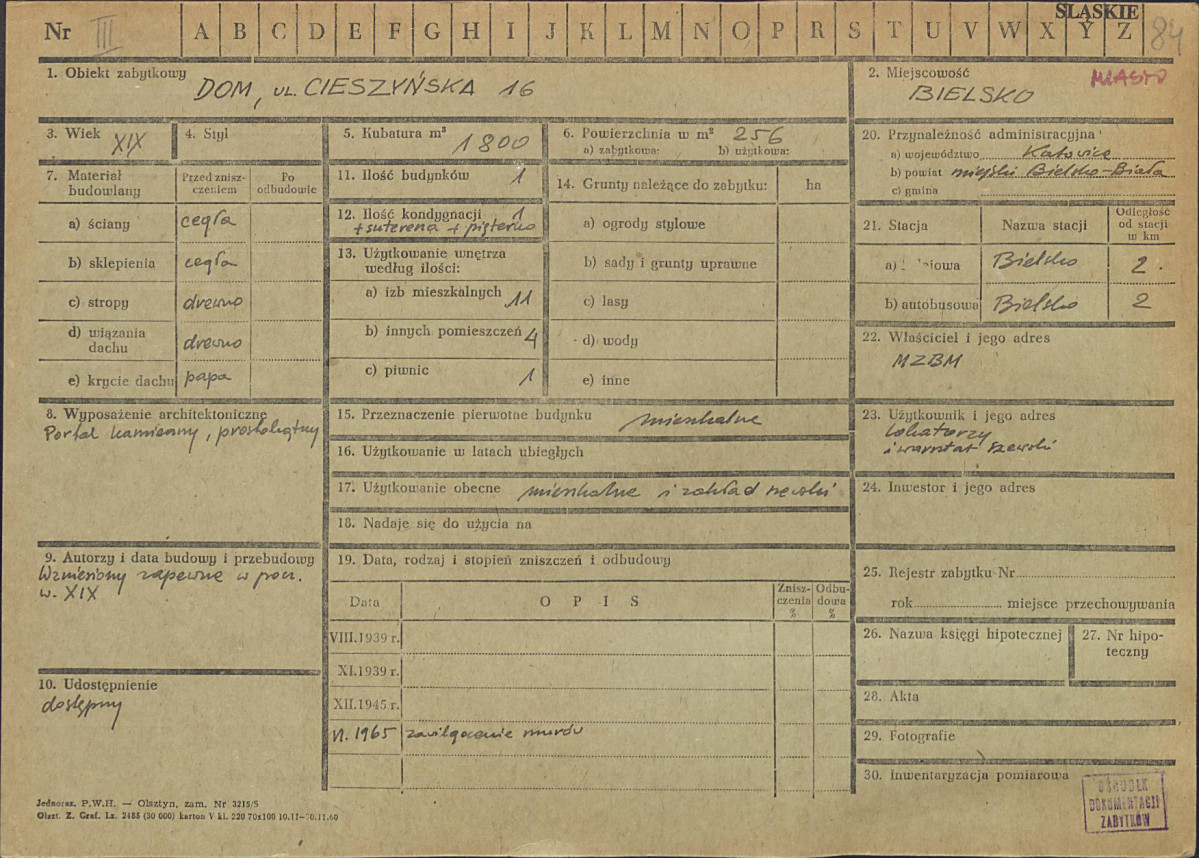 Nr III A B C D E F G H I J K L M N O P R S T U V W X Y Z 84
ŚLĄSKIE
1. Obiekt zabytkowy
DOM, UL. CIESZYŃSKA 16
2. Miejscowość MIASTO
BIELSKO
3. Wiek XIX
4. Styl
5. Kubatura m³ 1800
6. Powierzchnia w m² 256
a) zabytkowa: b) użytkowa:
7. Materiał budowlany
Przed zniszczeniem
Po odbudowie
a) ściany cegła
b) sklepienia cegła
c) stropy drewno
d) wiązania dachu drewno
e) krycie dachu papa
8. Wyposażenie architektoniczne
Portal kamienny, prostokątny
9. Autorzy i data budowy i przebudowy
Wzniesiony zapewne w pocz.
w. XIX
10. Udostępnienie
dostępny
11. Ilość budynków 1
12. Ilość kondygnacji 1
+ suterena + pięterko
13. Użytkowanie wnętrza
według ilości:
a) izb mieszkalnych 11
b) innych pomieszczeń 4
c) piwnic 1
14. Grunty należące do zabytku: ha
a) ogrody stylowe
b) sady i grunty uprawne
c) lasy
d) wody
e) inne
15. Przeznaczenie pierwotne budynku mieszkalne
16. Użytkowanie w latach ubiegłych
17. Użytkowanie obecne mieszkalne i zakład szewski
18. Nadaje się do użycia na
19. Data, rodzaj i stopień zniszczeń i odbudowy
Data OPIS Zniszczenia % Odbudowa %
VIII.1939 r.
XI.1939 r.
XII.1945 r.
VI. 1965 zawilgocenie murów
20. Przynależność administracyjna
a) województwo Katowice
b) powiat miejski Bielsko-Biała
c) gmina
21. Stacja Nazwa stacji Odległość od stacji w km
a) Bielsko 2.
b) autobusowa Bielsko 2
22. Właściciel i jego adres
MZBM
23. Użytkownik i jego adres
lokatorzy
i warsztat szewski
24. Inwestor i jego adres
25. Rejestr zabytku Nr
rok miejsce przechowywania
26. Nazwa księgi hipotecznej
27. Nr hipoteczny
28. Akta
29. Fotografie
30. Inwentaryzacja pomiarowa
OŚRODEK
DOKUMENTACJI
ZABYTKÓW
Jednoraz. P.W.H. — Olsztyn, zam. Nr 3215/S
Olszt. Z. Graf. Lz. 2485 (30 000) karton V kl. 220 70x100 10.11-30.11.60